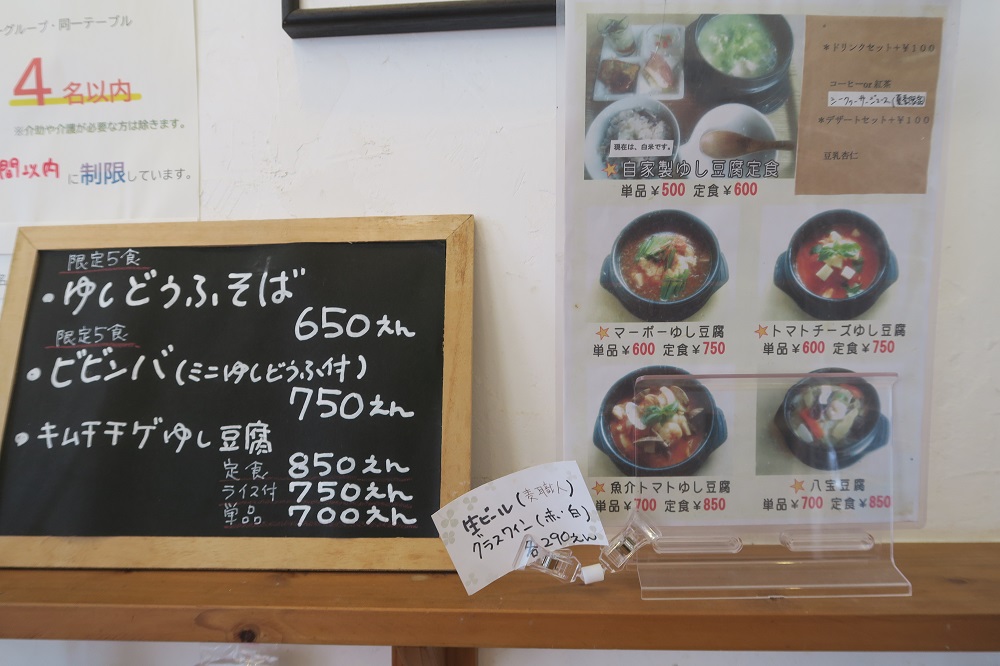 グループ・同一テーブル
4名以内
※介助や介護が必要な方は除きます。
間以内に制限しています。
限定5食
・ゆしどうふそば
650えん
限定5食
・ビビンバ(ミニゆしどうふ付)
750えん
・キムチチゲゆし豆腐
定食 850えん
ライス付 750えん
単品 700えん
生ビール(麦職人)
グラスワイン(赤・白)
各290えん
現在は、白米です。
自家製ゆし豆腐定食
単品¥500 定食¥600
*ドリンクセット+¥100
コーヒーor紅茶
シークヮーサージュース(夏季限定)
*デザートセット+¥100
豆乳杏仁
マーボーゆし豆腐
単品¥600 定食¥750
トマトチーズゆし豆腐
単品¥600 定食¥750
魚介トマトゆし豆腐
単品¥700 定食¥850
八宝豆腐
単品¥700 定食¥850